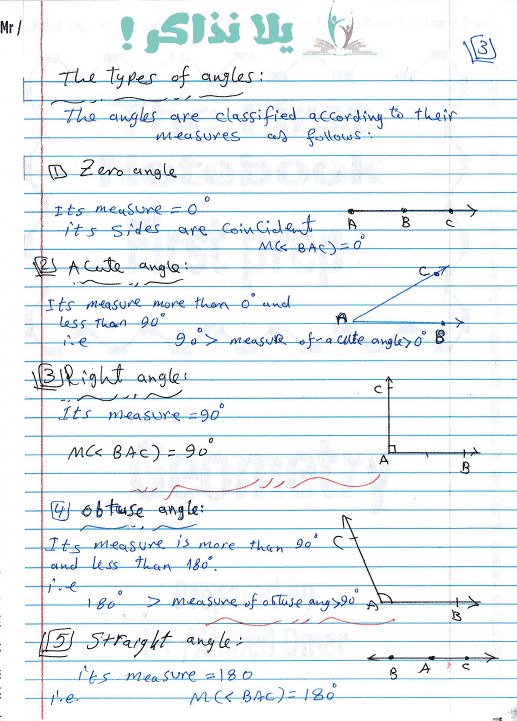 Mr /
يلا نذاكر !
3
The types of angles:
The angles are classified according to their
measures as follows:
1 Zero angle
Its measure = 0°
its sides are coincident
A B C
M(< BAC) = 0°
2 Acute angle:
C
Its measure more than 0° and
less than 90°
A
B
i.e 90° > measure of acute angle > 0°
3 Right angle:
C
Its measure = 90°
M(< BAC) = 90°
A B
4 obtuse angle:
Its measure is more than 90°
C
and less than 180°.
i.e
180° > measure of obtuse ang > 90°
A B
5 Straight angle:
B A C
its measure = 180
i.e. M(< BAC) = 180°